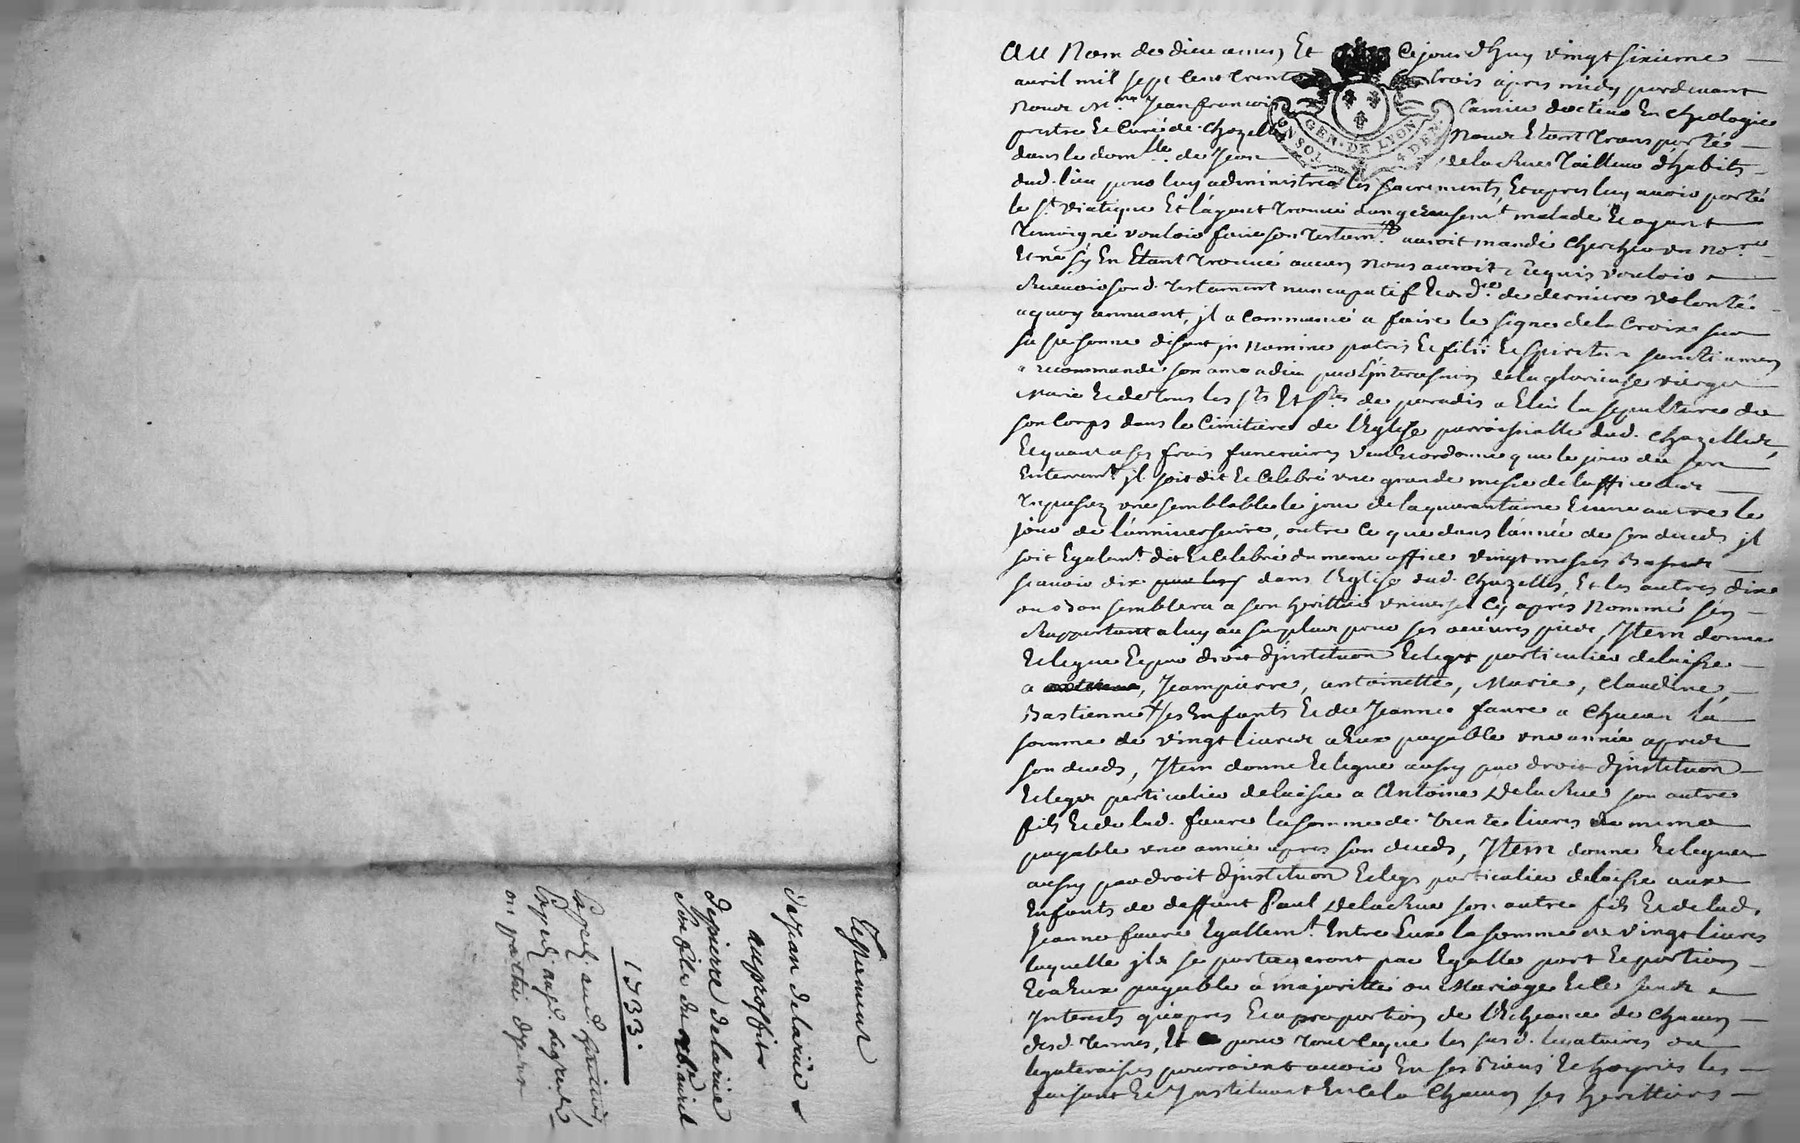 Au Nom de dieu amen, Et Cejourd'huy vingt sixieme
avril mil sept Cent trente trois apres midy pardevant
Nous M.re Jean francois Camier docteur En theologie
prestre Et Curé de Chazelle Nous Etant transporté
dans le dom.lle de Jean delaRue Tailleur d'habits
dud. lieu pour luy administrer les sacrements, Et apres luy avoir porté
le s.t viatique Et l'ayant trouvé dangereusem.t malade Et ayant
temoigné vouloir faire son testam.t auroit mandé chercher un no.re
Et ne s'y En Etant trouvé aucun Nous auroit requis vouloir
Recevoir sond. testament nuncupatif Et ord.ce de derniere volonté
aquoy annuant, jl a Commencé a faire le signe dela Croix sur
sa personne disant jn nomine patris Et filii Et spiritus sancti amen
a recommandé son ame a dieu par l'intercession dela glorieuse vierge
Marie Et de tous les s.ts Et s.tes de paradis a Elû la sepulture de
son Corps dans le Cimitiere de l'Eglise parroissialle dud. Chazelles,
Et quant a ses frais funeraires veut Et ordonne que le jour de son
Enterrem.t jl soit dit Et Celebré une grande messe de l'office des
trepassez une semblable le jour de la quarantaine Et une autre le
jour de l'anniversaire, outre Ce que dans l'année de son deceds jl
soit Egalem.t dit Et Celebré du meme office vingt messes Basses
scavoir dix dans l'Eglise dud. Chazelles, Et les autres dix
ou Bon semblera a son heritier universel Cy apres Nommé s'en
Rapportant a luy au surplus pour ses oeuvres pies, Jtem donne
Et legue Et par droit d'jnstitution Et legs particulier delaisse
a Jeanpierre, antoinette, Marie, Claudine,
Bastienne ses Enfants Et de Jeanne faure a Chacun la
somme de vingt livres a Eux payable une année apres
son deceds, Jtem donne Et legue aussy par droit d'jnstitution
Et legs particulier delaisse a Antoine DelaRue son autre
fils Et de lad. faure la somme de trente livres De meme
payable une année apres son deceds, Jtem donne Et legue
aussy par droit d'jnstitution Et legs particulier delaisse aux
Enfants de deffunt Paul DelaRue son autre fils Et de lad.
Jeanne faure Egallem.t Entre Eux la somme de vingt livres
laquelle jls se partageront par Egalle part Et portion
Et a Eux payable à majorité ou Mariage Et le sans
Interests qu'apres Et a proportion de l'Echeance de Chacun
desd. termes, Et pour tout Ceque les susd. legataires ou
legateraises pourroient avoir En ses Biens Et hoyries les
faisant Et Jnstituant En Cela Chacun ses heritiers
GEN. DE LYON
UN SOL 4 DEN.
Testament
de jean delarüe
au proffit
de pierre delarüe
son fils du 26.e avril
1733